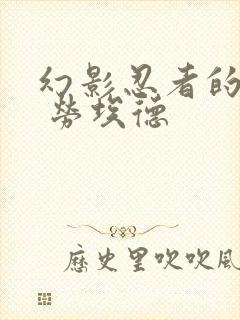 幻影忍者的
劳埃德
历史里吹吹风